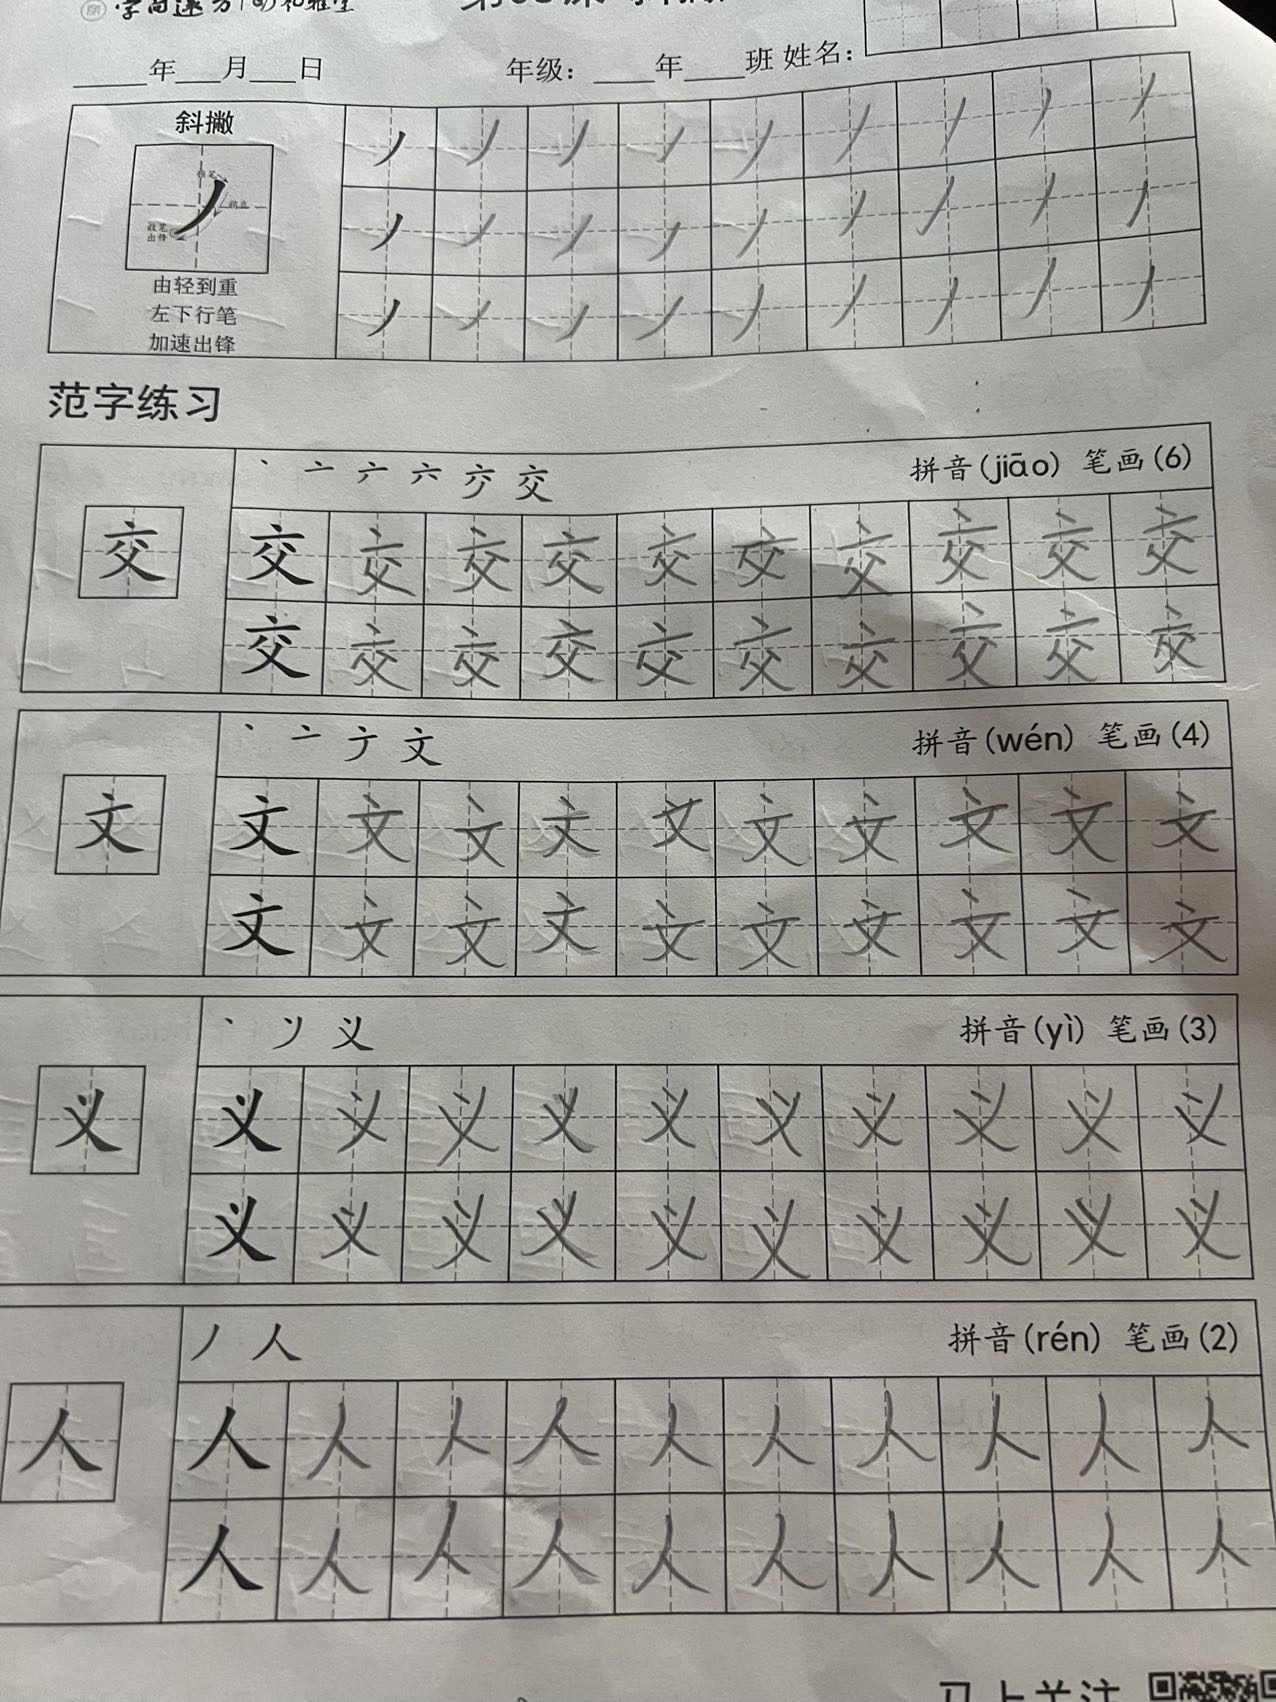 年 月 日 年级： 年 班 姓名：
斜撇
丿 丿 丿 丿 丿 丿 丿 丿 丿
丿 丿 丿 丿 丿 丿 丿 丿 丿
丿 丿 丿 丿 丿 丿 丿 丿 丿
由轻到重
左下行笔
加速出锋
范字练习
交 拼音(jiāo) 笔画(6)
交 交 交 交 交 交 交 交 交 交
交 交 交 交 交 交 交 交 交 交
文 拼音(wén) 笔画(4)
文 文 文 文 文 文 文 文 文 文
文 文 文 文 文 文 文 文 文 文
义 拼音(yì) 笔画(3)
义 义 义 义 义 义 义 义 义 义
义 义 义 义 义 义 义 义 义 义
人 丿 人 拼音(rén) 笔画(2)
人 人 人 人 人 人 人 人 人 人
人 人 人 人 人 人 人 人 人 人
马上关注